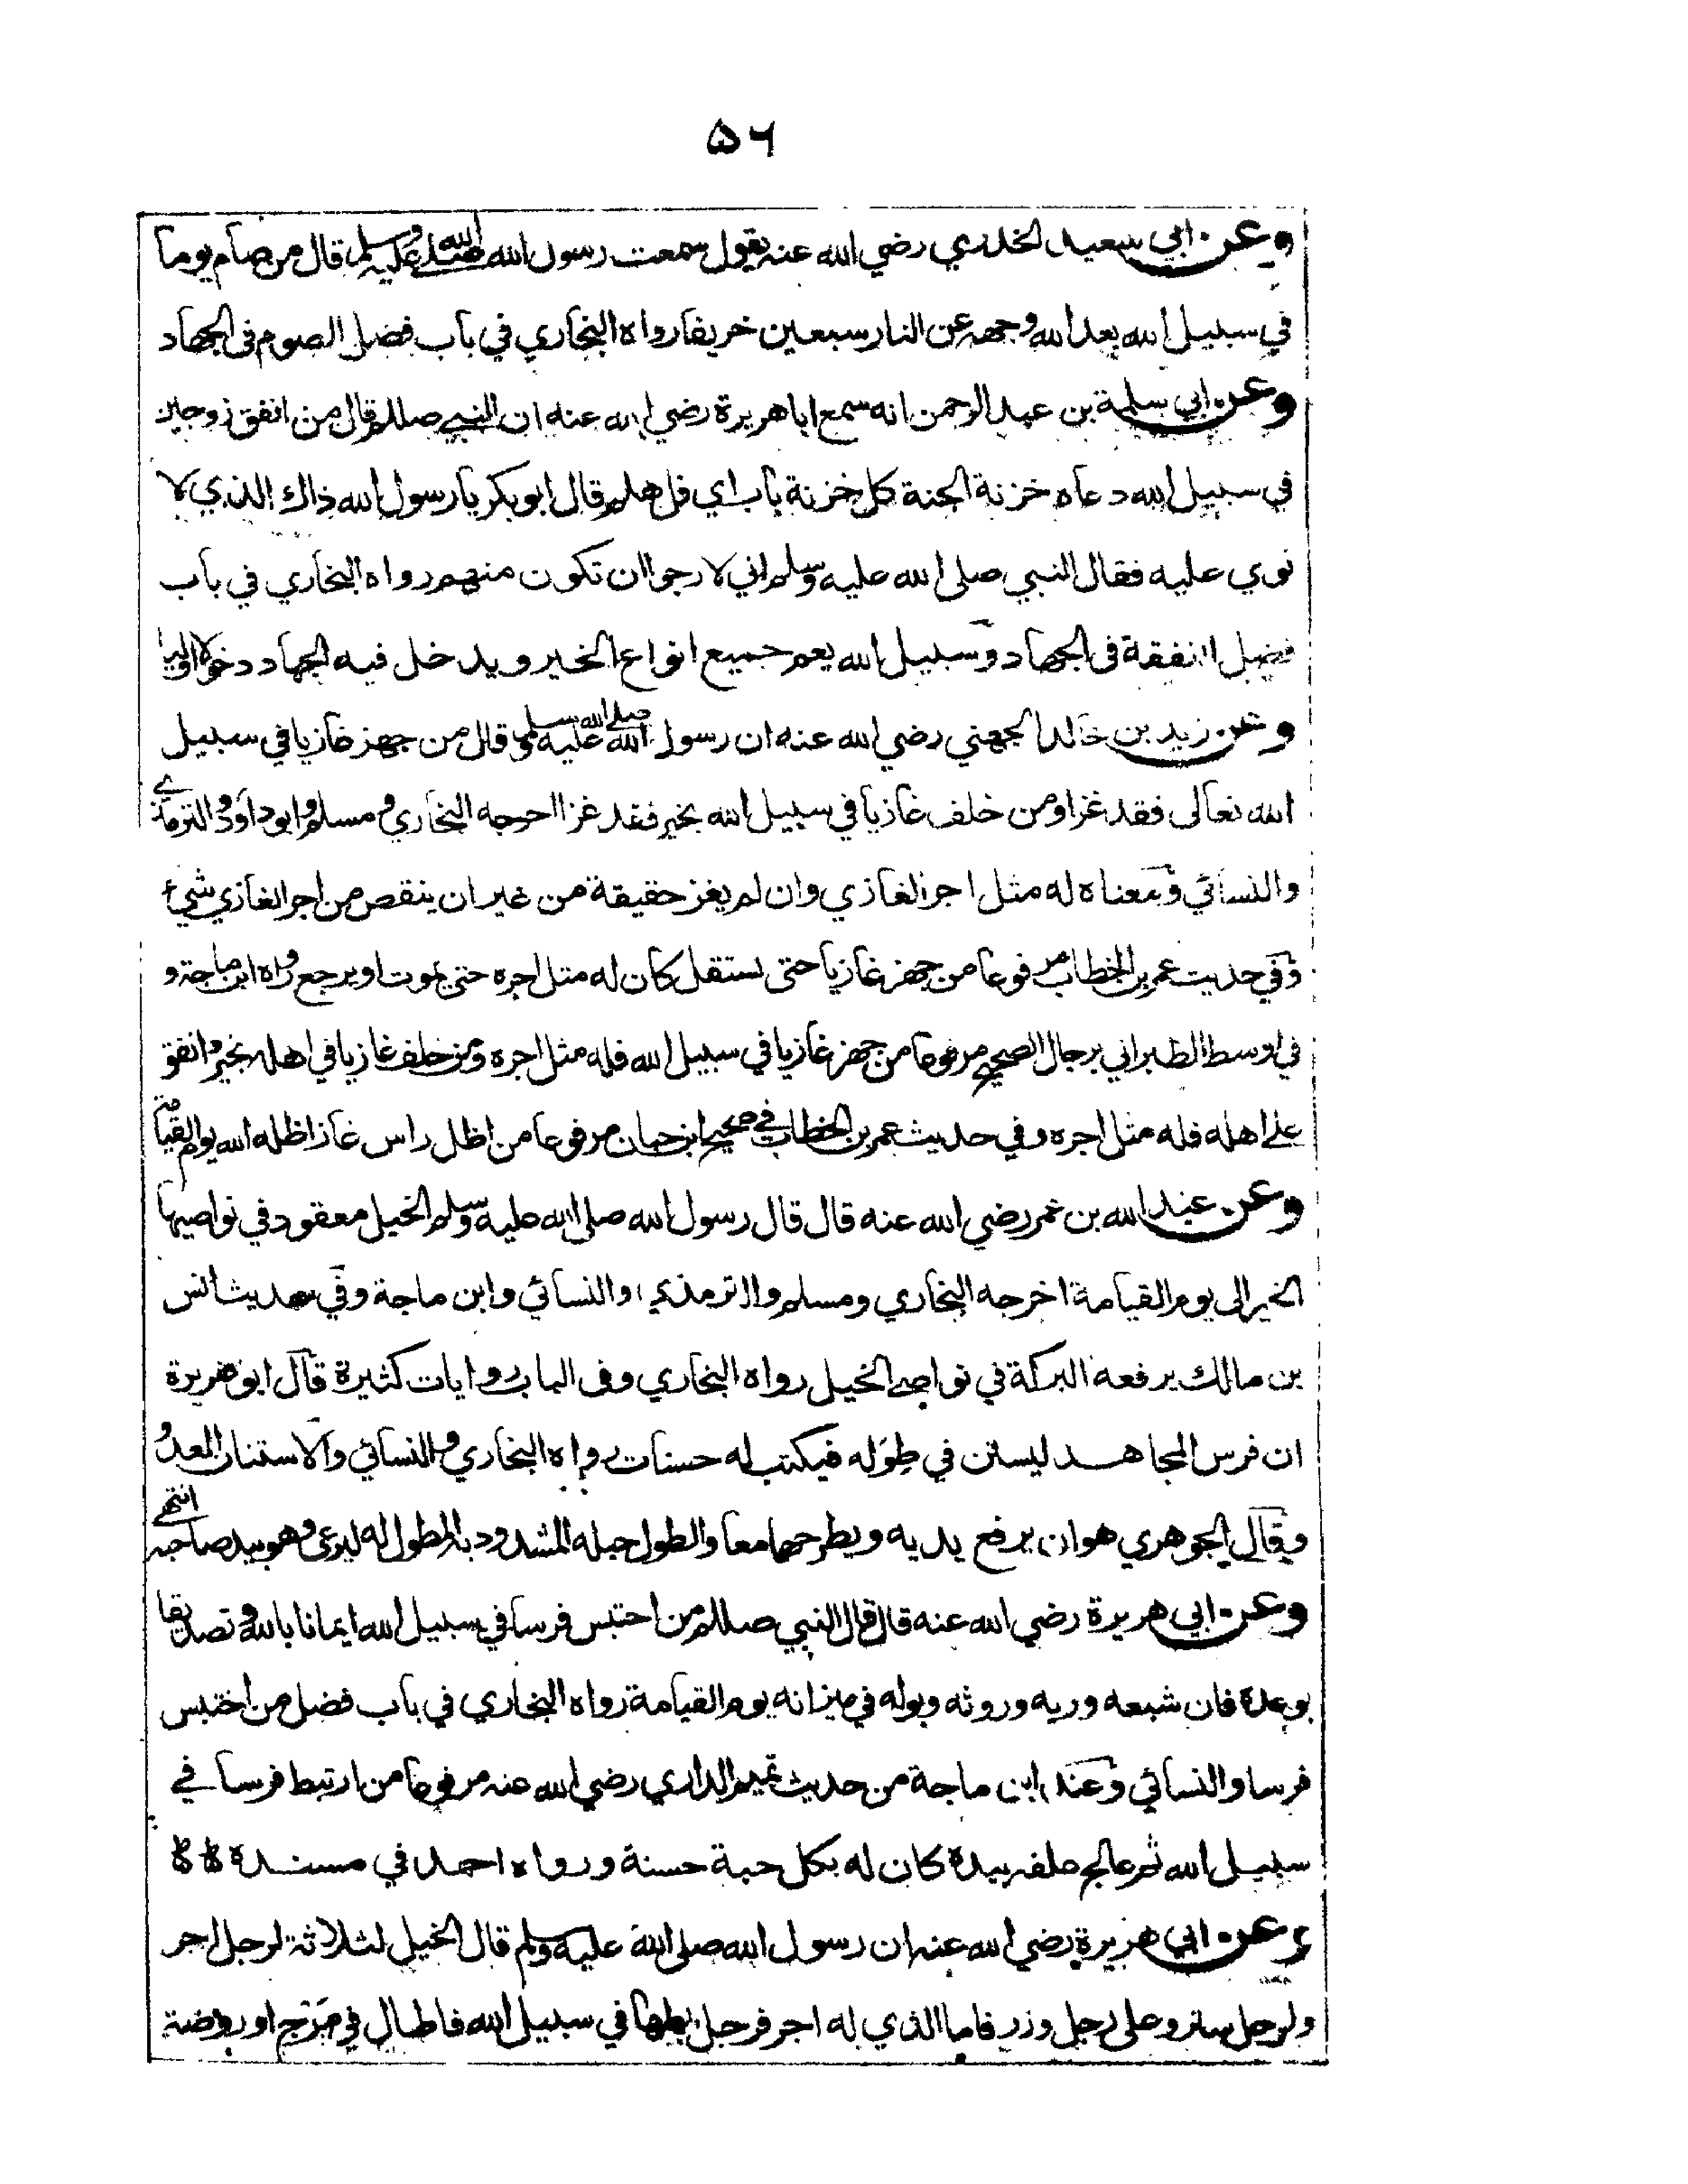 ۵۶
وعن ابي سعيد الخدري رضي الله عنه يقول سمعت رسول الله صلى الله عليه وسلم قال من صام يوما
في سبيل الله بعد الله وجهه عن النار سبعين خريفا رواه البخاري في باب فضل الصوم في الجهاد
وعن ابي سلمة بن عبد الرحمن انه سمع ابا هريرة رضي الله عنه ان النبي صللم قال من انفق زوجين
في سبيل الله دعاه خزنة الجنة كل خزنة باب اي فل هلم قال ابو بكر يا رسول الله ذاك الذي لا
توي عليه فقال النبي صلى الله عليه وسلم اني لارجو ان تكون منهم رواه البخاري في باب
فضل النفقة في الجهاد وسبيل الله يعم جميع انواع الخير ويدخل فيه الجهاد دخولا اوليا
وعن زيد بن خالد الجهني رضي الله عنه ان رسول الله صلى الله عليه وسلم قال من جهز غازيا في سبيل
الله تعالى فقد غزا ومن خلف غازيا في سبيل الله بخير فقد غزا اخرجه البخاري ومسلم وابو داود والترمذي
والنسائي ومعناه له مثل اجر الغازي وان لم يغز حقيقة من غير ان ينقص من اجر الغازي شيء
وفي حديث عمر بن الخطاب مرفوعا من جهز غازيا حتى يستقل كان له مثل اجره حتى يموت او يرجع رواه ابن ماجة و
في اوسط الطبراني برجال الصحيح مرفوعا من جهز غازيا في سبيل الله فله مثل اجره ومن خلف غازيا في اهله بخير وانفق
على اهله فله مثل اجره وفي حديث عمر بن الخطاب في صحيح ابن حبان مرفوعا من اظل راس غاز اظله الله يوم القيامة
وعن عبد الله بن عمر رضي الله عنه قال قال رسول الله صلى الله عليه وسلم الخيل معقود في نواصيها
الخير الى يوم القيامة اخرجه البخاري ومسلم والترمذي والنسائي وابن ماجة وفي حديث انس
بن مالك يرفعه البركة في نواصي الخيل رواه البخاري وفي الباب روايات كثيرة قال ابو هريرة
ان فرس المجاهد ليستن في طوله فيكتب له حسنات رواه البخاري والنسائي والاستنان العدو
وقال الجوهري هو ان يرفع يديه ويطرحهما معا والطول حبله المشدود به المطول له ليرعى وهو بيد صاحبه انتهى
وعن ابي هريرة رضي الله عنه قال قال النبي صللم من احتبس فرسا في سبيل الله ايمانا بالله وتصديقا
بوعده فان شبعه وريه وروثه وبوله في ميزانه يوم القيامة رواه البخاري في باب فضل من احتبس
فرسا والنسائي وعند ابن ماجة من حديث تميم الداري رضي الله عنه مرفوعا من ارتبط فرسا في
سبيل الله ثم عالج علفه بيده كان له بكل حبة حسنة ورواه احمد في مسنده
وعن ابي هريرة رضي الله عنه ان رسول الله صلى الله عليه وسلم قال الخيل لثلاثة لرجل اجر
ولرجل ستر وعلى رجل وزر فاما الذي له اجر فرجل ربطها في سبيل الله فاطال في مرج او روضة